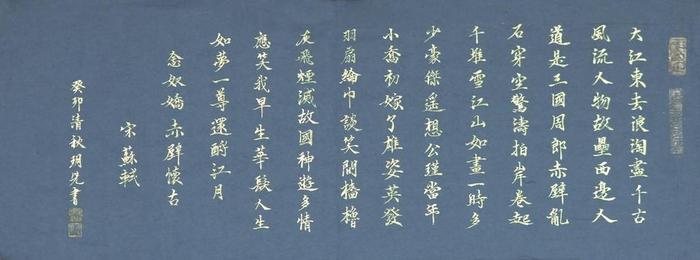 大江東去浪淘盡千古
風流人物故壘西邊人
道是三國周郎赤壁亂
石穿空驚濤拍岸卷起
千堆雪江山如畫一時多
少豪傑遙想公瑾當年
小喬初嫁了雄姿英發
羽扇綸巾談笑間檣櫓
灰飛煙滅故國神遊多情
應笑我早生華髮人生
如夢一尊還酹江月
念奴嬌赤壁懷古
宋蘇軾
癸卯清秋玥先書